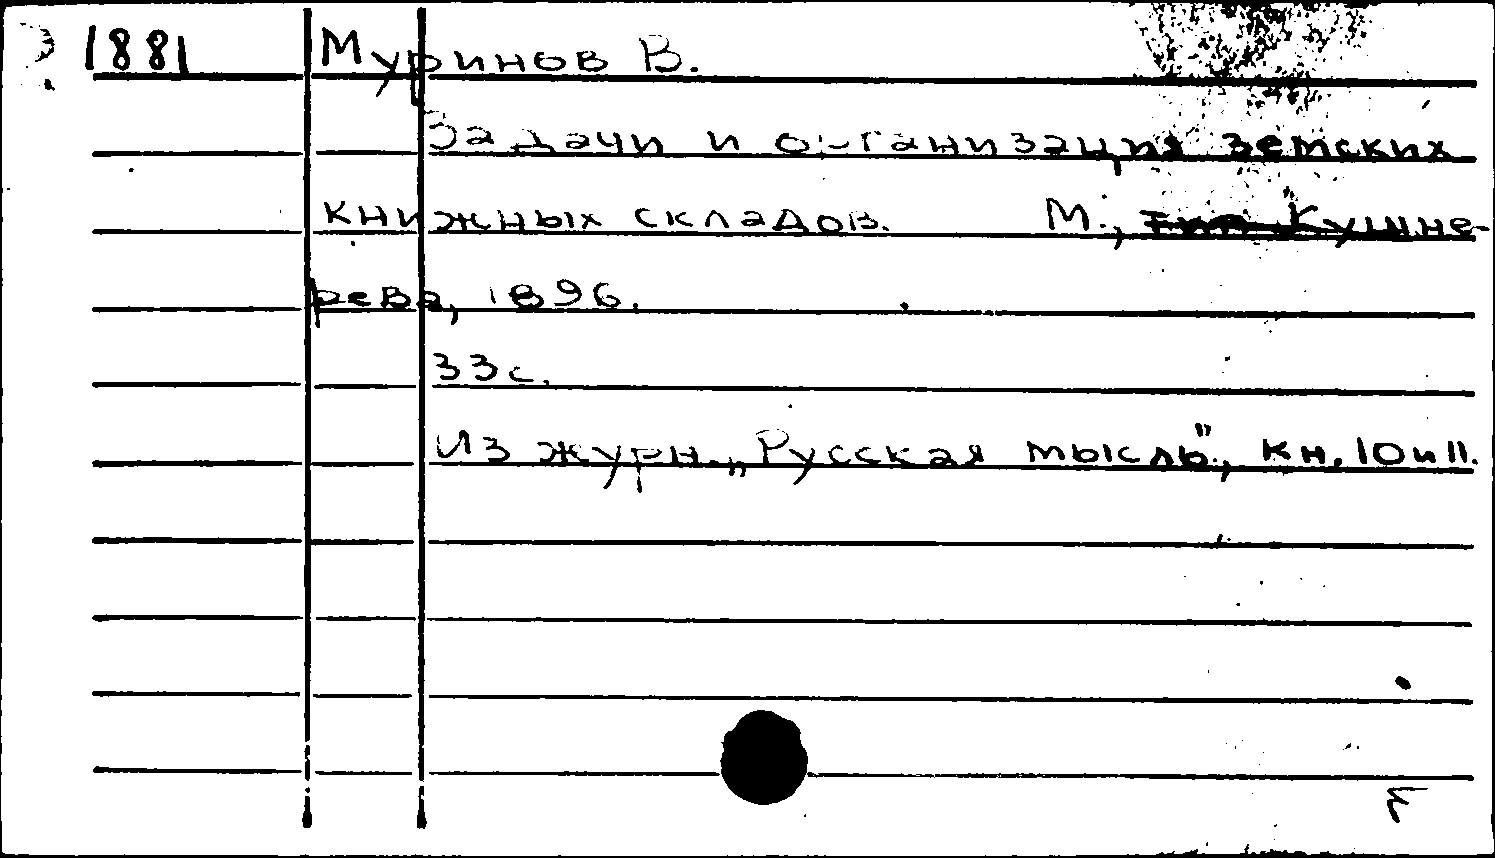 1881 Муринов В.
Задачи и организация земских
книжных складов. М., тип. Кушне-
рева, 1896.
33 с.
Из журн. „Русская мысль", кн. 10 и 11.